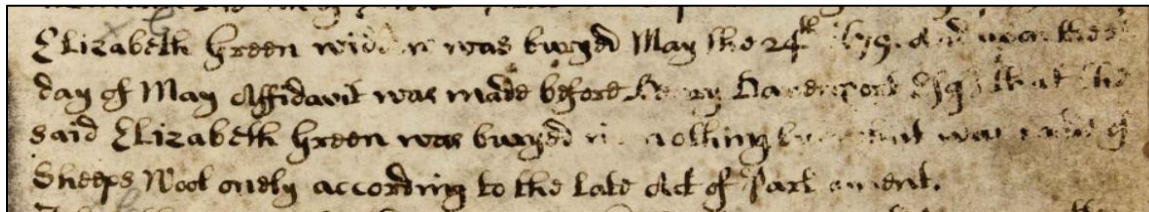 Elizabeth Green widow was buryed May the 24th 1679. And upon the
day of May Affidavit was made before Henry Davenport Esqr that the
said Elizabeth Green was buryed in nothing but what was made of
Sheeps Wool onely according to the Late Act of Parliament.